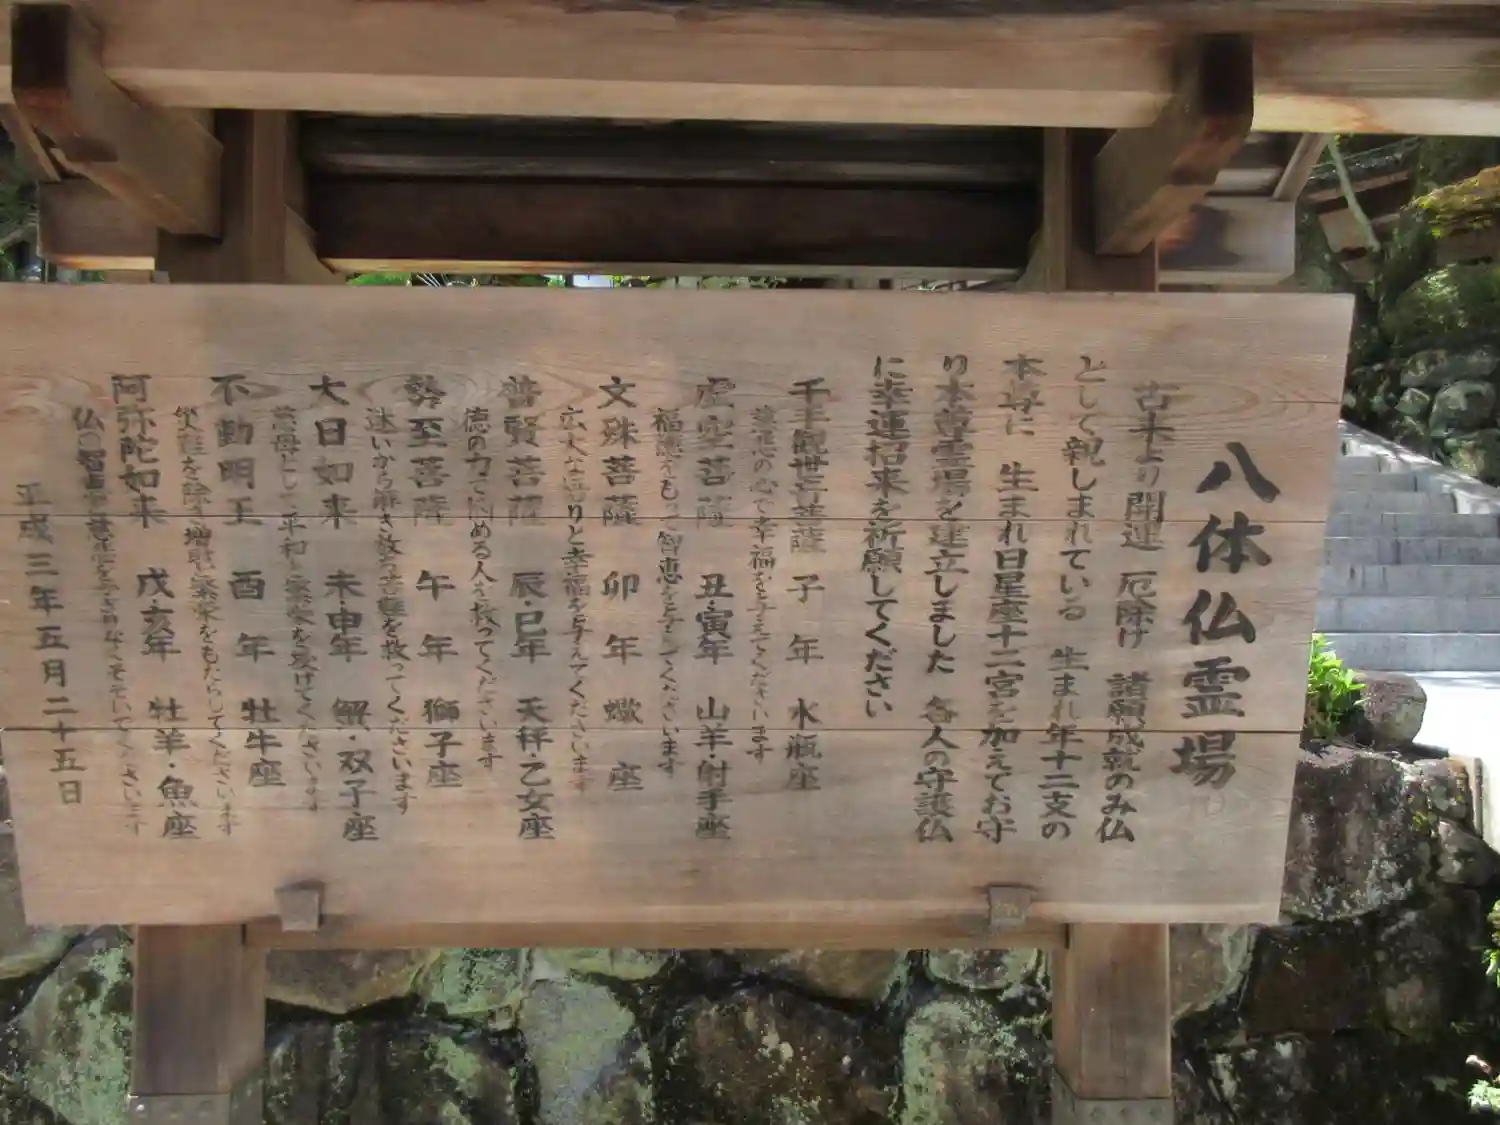 八体仏霊場
古来より開運 厄除け 諸願成就のみ仏
として親しまれている 生まれ年十二支の
本尊に 生まれ日星座十二宮を加えてお守
り本尊霊場を建立しました 各人の守護仏
に幸運招来を祈願してください
千手観世音菩薩 子年 水瓶座
慈悲の心で幸福を与えてくださいます
虚空菩薩 丑・寅年 山羊・射手座
福徳をもって智恵を与えてくださいます
文殊菩薩 卯年 蠍座
広大な悟りと幸福を与えてくださいます
普賢菩薩 辰・巳年 天秤・乙女座
徳の力で悩める人を救ってくださいます
勢至菩薩 午年 獅子座
迷いから解き放ち苦難を救ってくださいます
大日如来 未・申年 蟹・双子座
慈母として平和と繁栄を授けてくださいます
不動明王 酉年 牡牛座
災難を除き増財と繁栄をもたらしてくださいます
阿弥陀如来 戌・亥年 牡羊・魚座
仏の智恵と慈悲をふりそそいでくださいます
平成三年五月二十五日